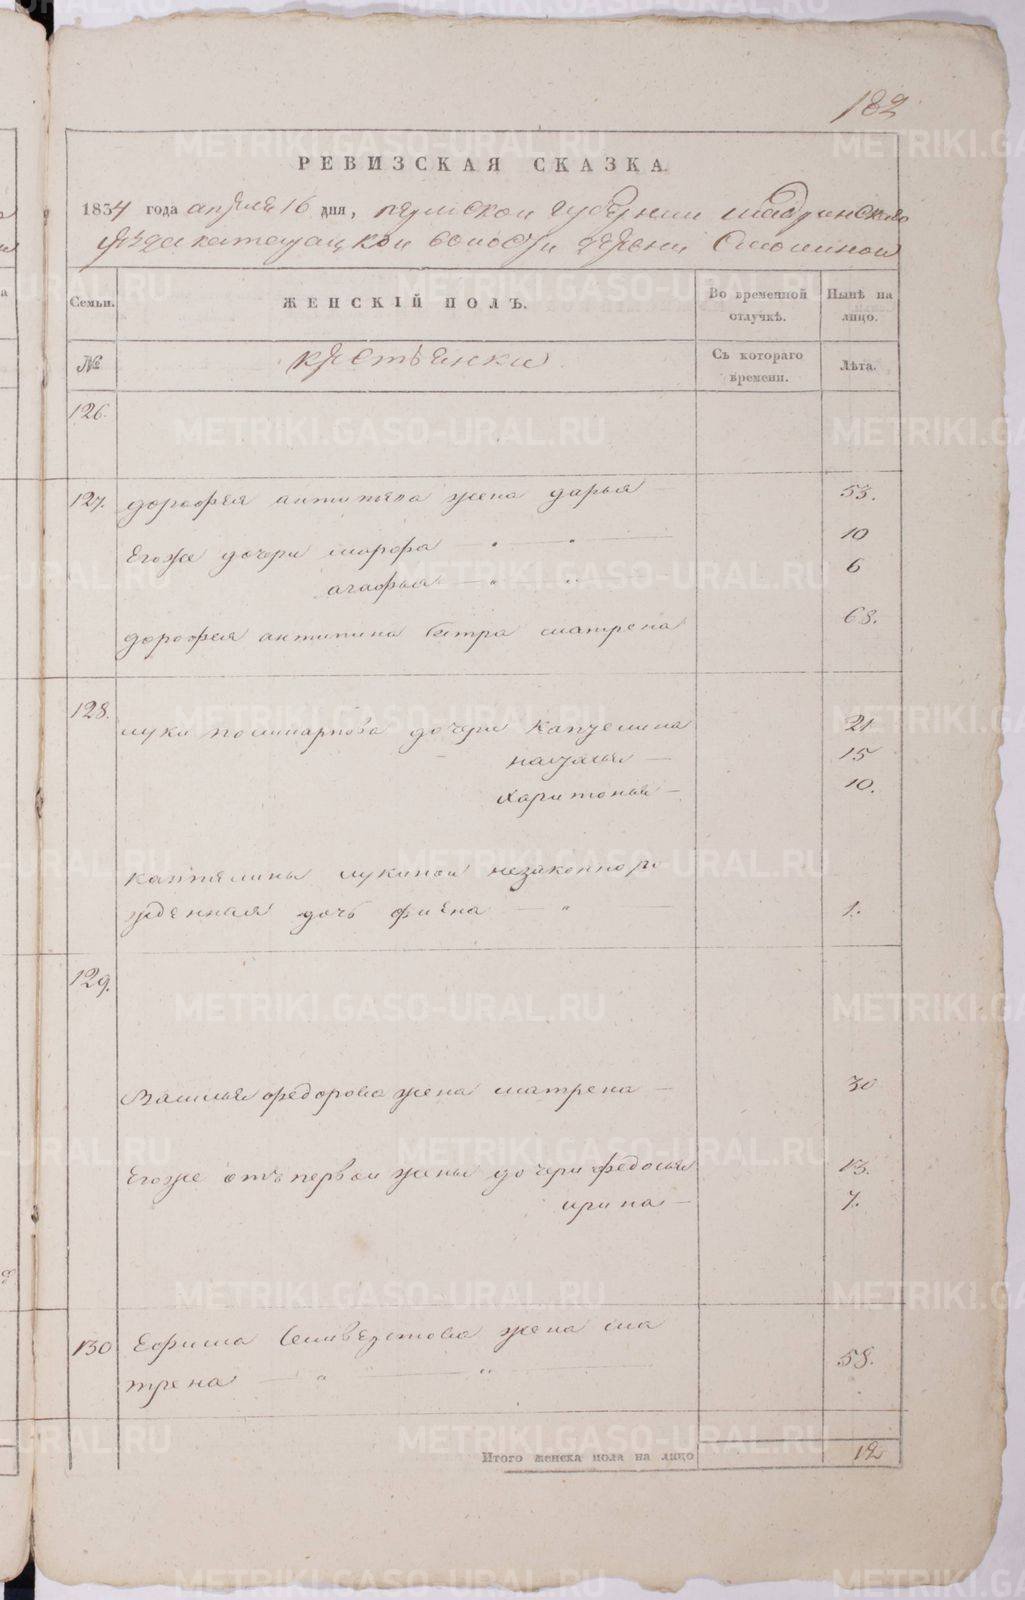 182
РЕВИЗСКАЯ СКАЗКА
1834 года апреля 16 дня, пермской губернии шадринского
уезда катайской волости деревни
Семьи. ЖЕНСКІЙ ПОЛЪ. Во временной отлучкѣ. Нынѣ на лицо.
№ крестьянки Съ котораго времени. Лѣта.
126.
127. дорофея антипьева жена дарья 53.
Егоже дочери марфа 10
агафья 6
дорофея антипина сестра матрена 68.
128.
луки поликарпова дочери капителина 21
наталья 15
Харитонья 10.
капителины лукиной незаконноро
жденная дочь 1.
129.
Василья федорова жена матрена 30
Егоже отъ первои жены дочери федосья 13.
ирина 7.
130 Ефима Селиверстова жена ма
трена 58.
Итого женска пола на лицо 12
METRIKI.GASO-URAL.RU